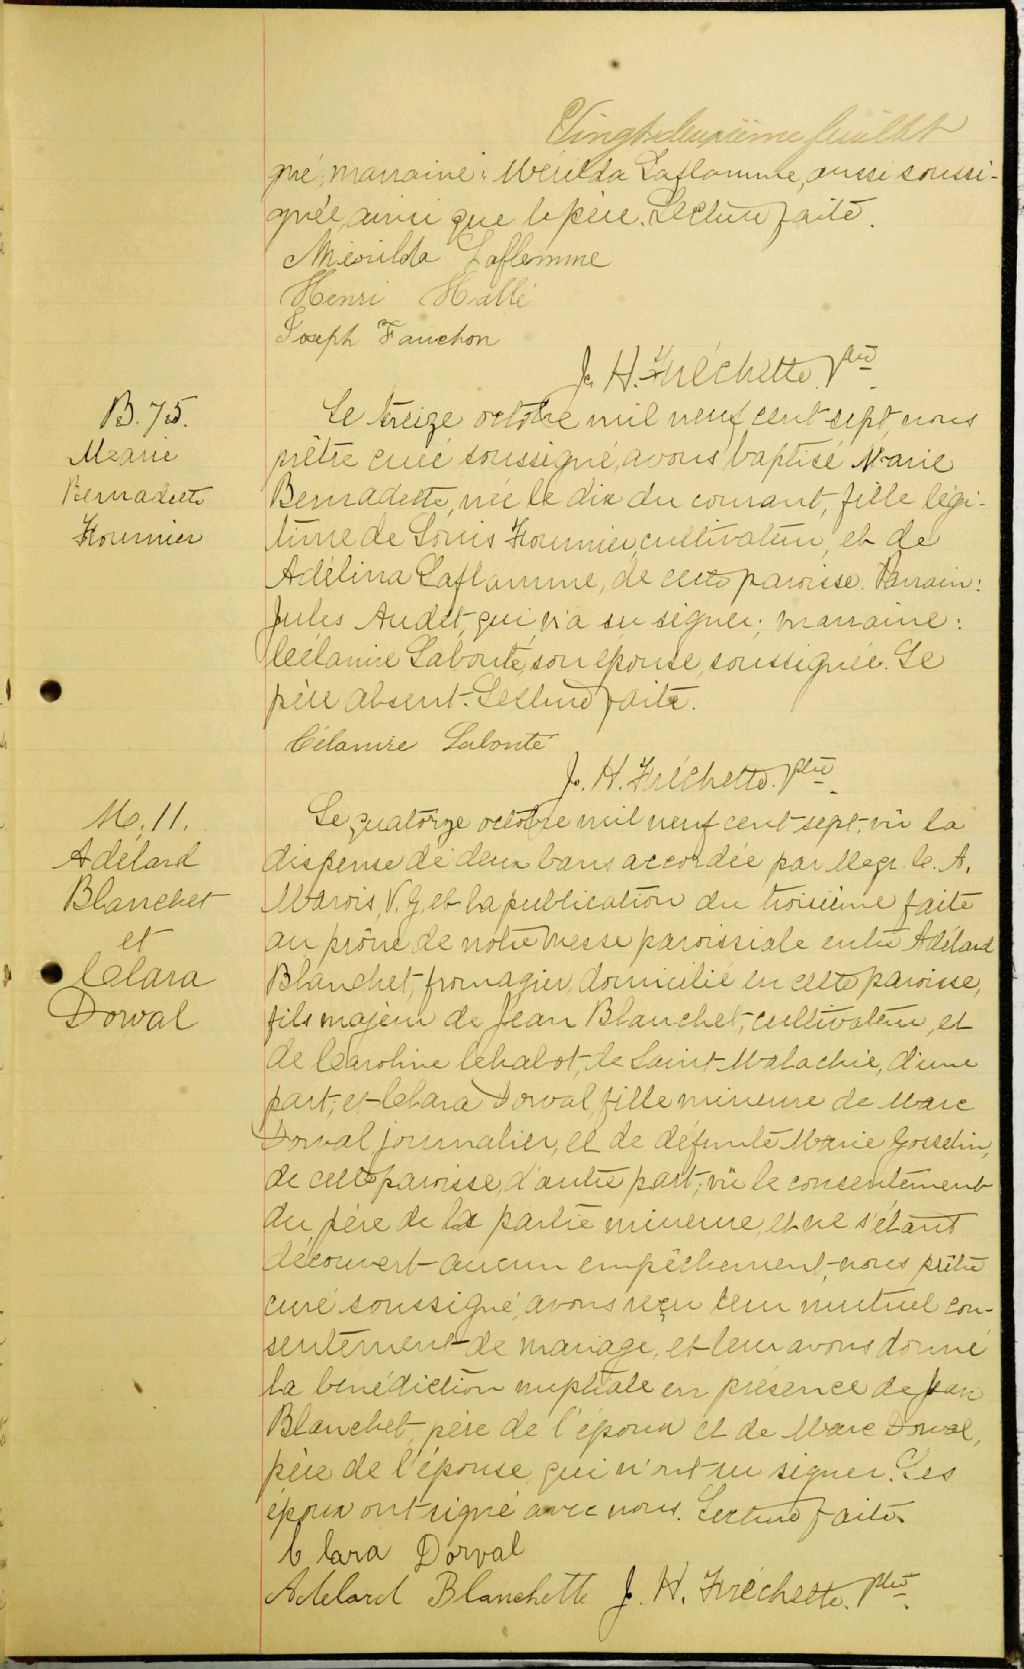 Vingt-deuxième feuillet
gné, marraine: Mérilda Laflamme, aussi soussi-
gnée, ainsi que le père. Lecture faite.
Mérilda Laflamme
Henri Hallé
Joseph Fauchon
J. H. Fréchette, Ptre
B. 75.
Marie
Bernadette
Fournier
Le treize octobre mil neuf cent sept, nous
prêtre curé soussigné, avons baptisé Marie
Bernadette, née le dix du courant, fille légi-
time de Louis Fournier, cultivateur, et de
Adélina Laflamme, de cette paroisse. Parrain:
Jules Audet, qui n'a su signer; marraine:
Célanire Labonté, son épouse, soussignée. Le
père absent. Lecture faite.
Célanire Labonté
J. H. Fréchette, Ptre
M. 11.
Adélard
Blanchet
et
Clara
Dorval
Le quatorze octobre mil neuf cent sept, vu la
dispense de deux bans accordée par Mgr. C. A.
Marois, V. G, et la publication du troisième faite
au prône de notre messe paroissiale entre Adélard
Blanchet, fromagier, domicilié en cette paroisse,
fils majeur de Jean Blanchet, cultivateur, et
de Caroline Chabot, de Saint-Malachie, d'une
part; et Clara Dorval, fille mineure de Marc
Dorval, journalier, et de défunte Marie Gosselin,
de cette paroisse, d'autre part; vu le consentement
du père de la partie mineure, et ne s'étant
découvert aucun empêchement, nous prêtre
curé soussigné, avons reçu leur mutuel con-
sentement de mariage, et leur avons donné
la bénédiction nuptiale en présence de Jean
Blanchet, père de l'époux et de Marc Dorval,
père de l'épouse, qui n'ont su signer. Les
époux ont signé avec nous. Lecture faite.
Clara Dorval
Adelard Blanchette J. H. Fréchette, Ptre